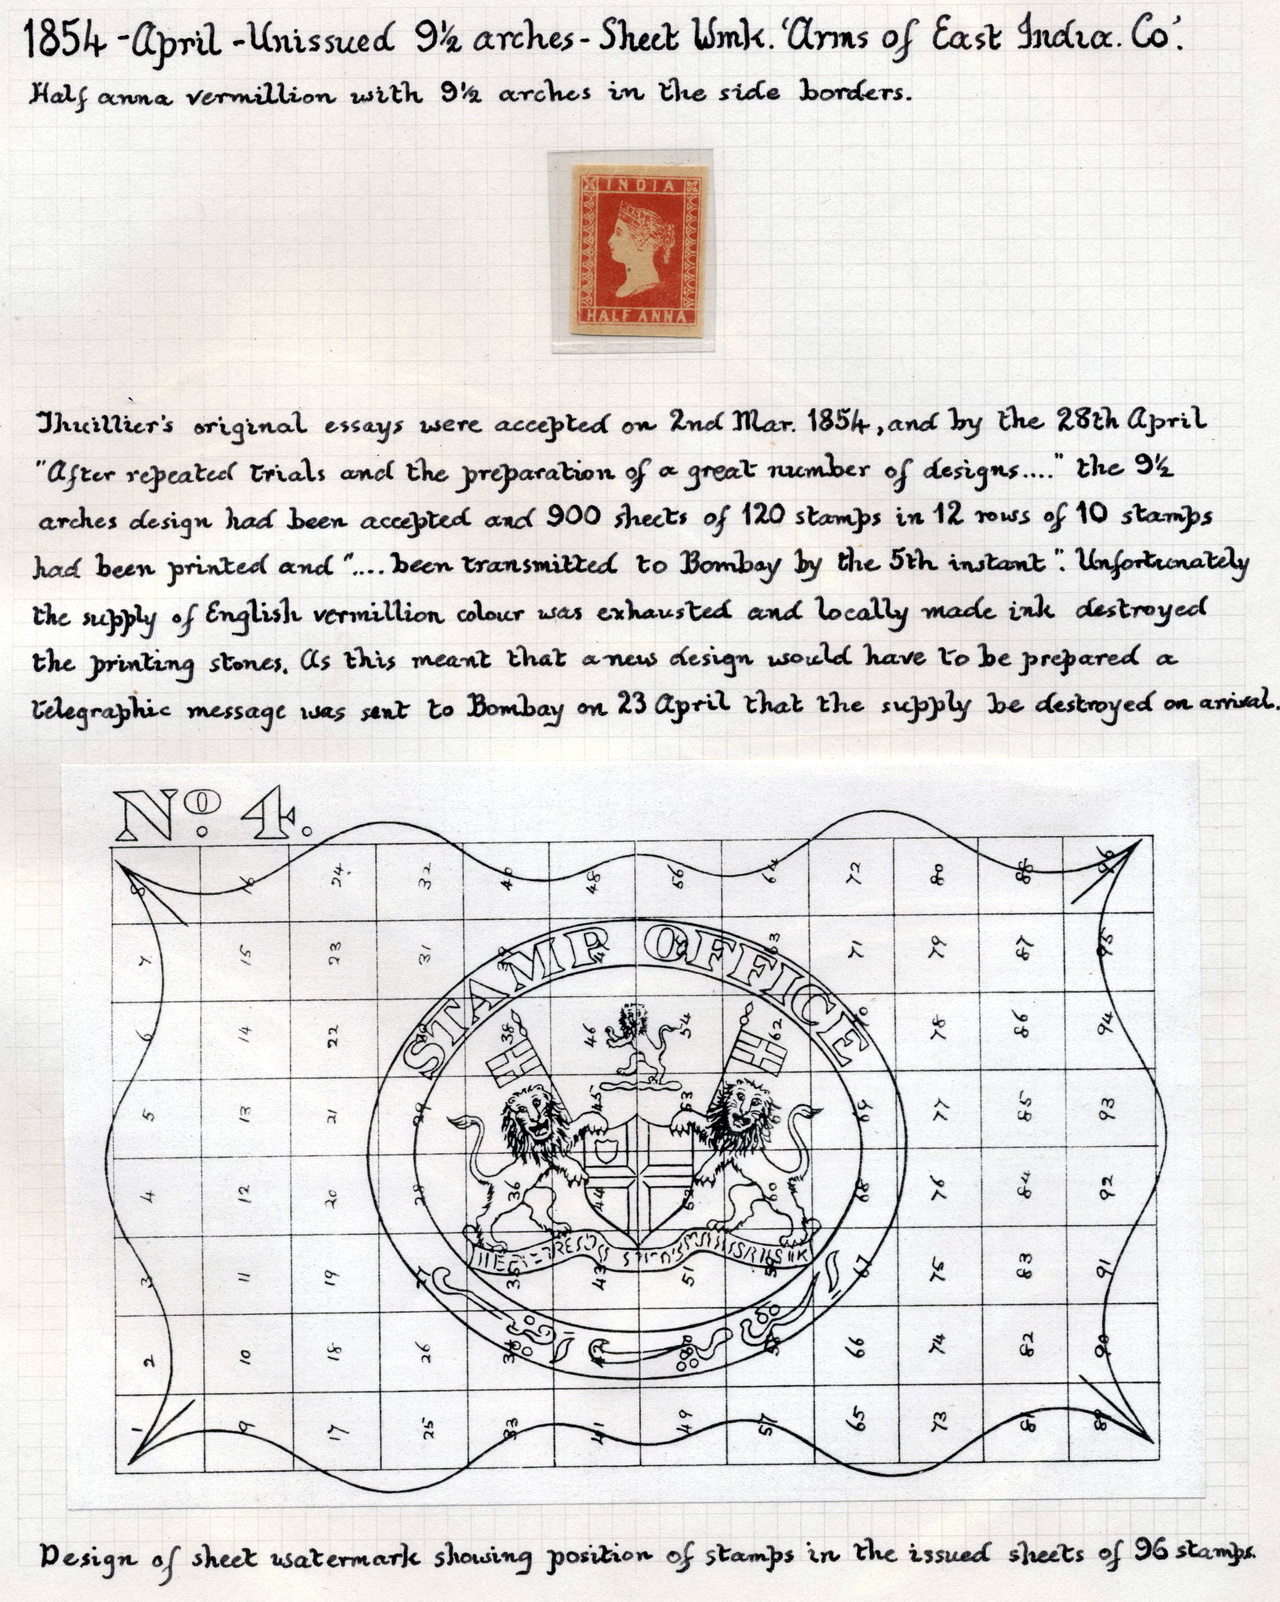 1854 - April - Unissued 9½ arches - Sheet Wmk. 'Arms of East India. Co'.
Half anna vermillion with 9½ arches in the side borders.
INDIA
HALF ANNA
Thuillier's original essays were accepted on 2nd Mar. 1854, and by the 28th April
"After repeated trials and the preparation of a great number of designs...." the 9½
arches design had been accepted and 900 sheets of 120 stamps in 12 rows of 10 stamps
had been printed and ".... been transmitted to Bombay by the 5th instant". Unfortunately
the supply of English vermillion colour was exhausted and locally made ink destroyed
the printing stones. As this meant that a new design would have to be prepared a
telegraphic message was sent to Bombay on 23 April that the supply be destroyed on arrival.
No. 4.
STAMP OFFICE
8 16 24 32 40 48 56 64 72 80 88 96
7 15 23 31 39 47 63 71 79 87 95
6 14 22 30 38 46 54 62 70 78 86 94
5 13 21 29 45 53 61 69 77 85 93
4 12 20 28 36 44 52 60 68 76 84 92
3 11 19 27 35 43 51 59 67 75 83 91
2 10 18 26 34 42 50 58 66 74 82 90
1 9 17 25 33 41 49 57 65 73 81 89
Design of sheet watermark showing position of stamps in the issued sheets of 96 stamps.